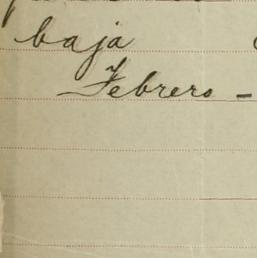 baja
Febrero -